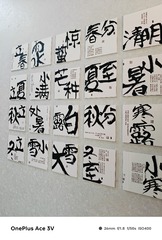 立春 惊蛰 春分 清明
立夏 小满 芒种 夏至 小暑
立秋 处暑 白露 秋分 寒露
立冬 小雪 大雪 冬至 小寒
OnePlus Ace 3V
26mm f/1.8 1/50s ISO400